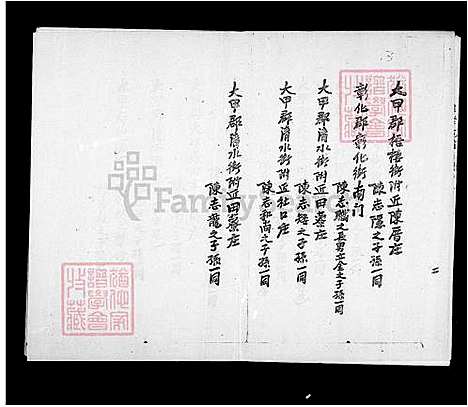 大甲郡梧棲街附近陳厝庄
陳志隱之子孫一同
彰化郡彰化街南门
陳志騰之長男立金之子孫一同
大甲郡清水街附近田寮庄
陳志矮之子孫一同
大甲郡清水街附近社口庄
陳志和尚之子孫一同
大甲郡清水街附近田寮庄
陳志龍之子孫一同
二
FamilySearch